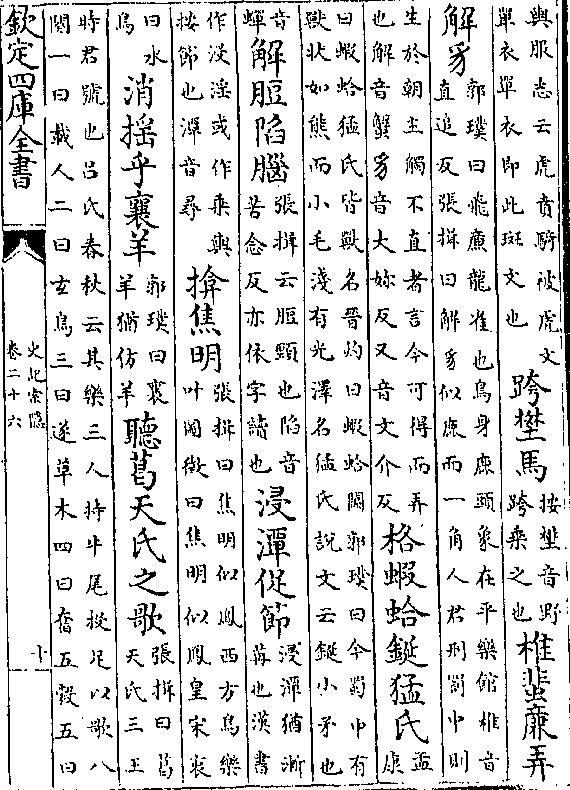 輿服志云虎賁騎被虎文
單衣單衣即此斑文也
跨壄馬
按壄音野
跨乗之也
椎蜚廉弄
解豸
郭璞曰飛廉龍雀也鳥身鹿頭象在平樂館椎音
直追反張揖曰解豸似鹿而一角人君刑罰中則
生於朝主觸不直者言今可得而弄
也解音蟹豸音丈妳反又音丈介反
格蝦蛤鋋猛氏
孟康
曰蝦蛤猛氏皆獸名晉灼曰蝦蛤闕郭璞曰今蜀中有
獸狀如熊而小毛淺有光澤名猛氏説文云鋋小矛也
音
蟬
解脰陷腦
張揖云脰頸也陷音
苦念反亦依字讀也
浸潭促節
浸潭猶漸
苒也漢書
作浸淫或作乗輿
按節也潭音尋
揜焦明
張揖曰焦明似鳳西方鳥樂
叶圖徴曰焦明似鳳皇宋衷
曰水
鳥
消揺乎襄羊
郭璞曰襄
羊猶仿羊
聽葛天氏之歌
張揖曰葛
天氏三王
時君號也吕氏春秋云其樂三人持牛尾投足以歌八
闋一曰載人二曰玄鳥三曰遂草木四曰奮五穀五曰
欽定四庫全書
史記索隱
卷二十六
十